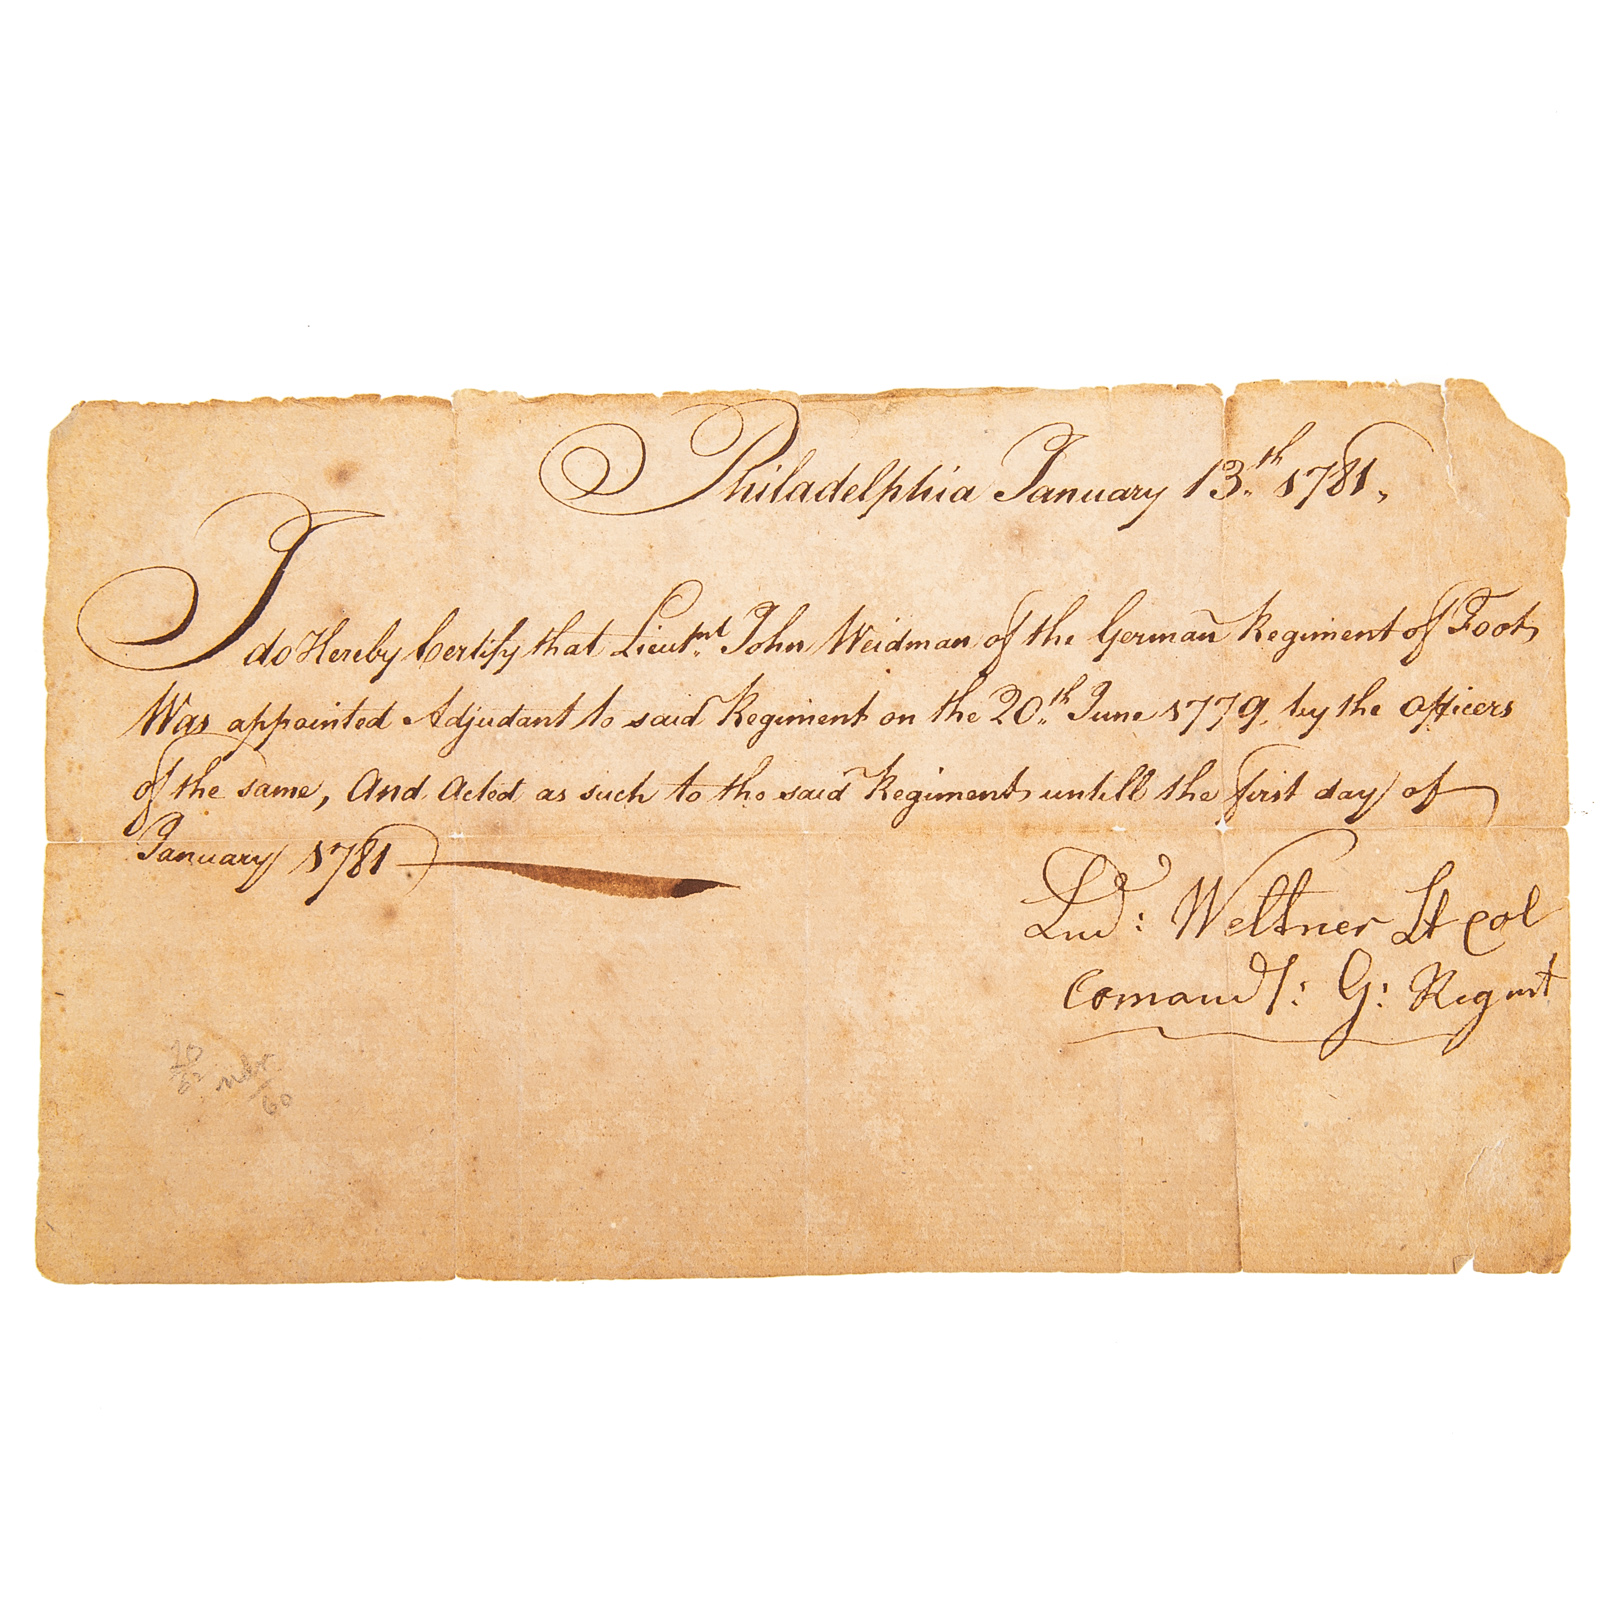 Philadelphia January 13th 1781.
I do Hereby Certify that Lieutnt John Weidman of the German Regiment of Foot
Was appointed Adjudant to said Regiment on the 20th June 1779, by the Officers
of the same, And Acted as such to the said Regiment untill the first day of
January 1781
Lud: Weltner Lt Col
Comandt: G: Regmt
60